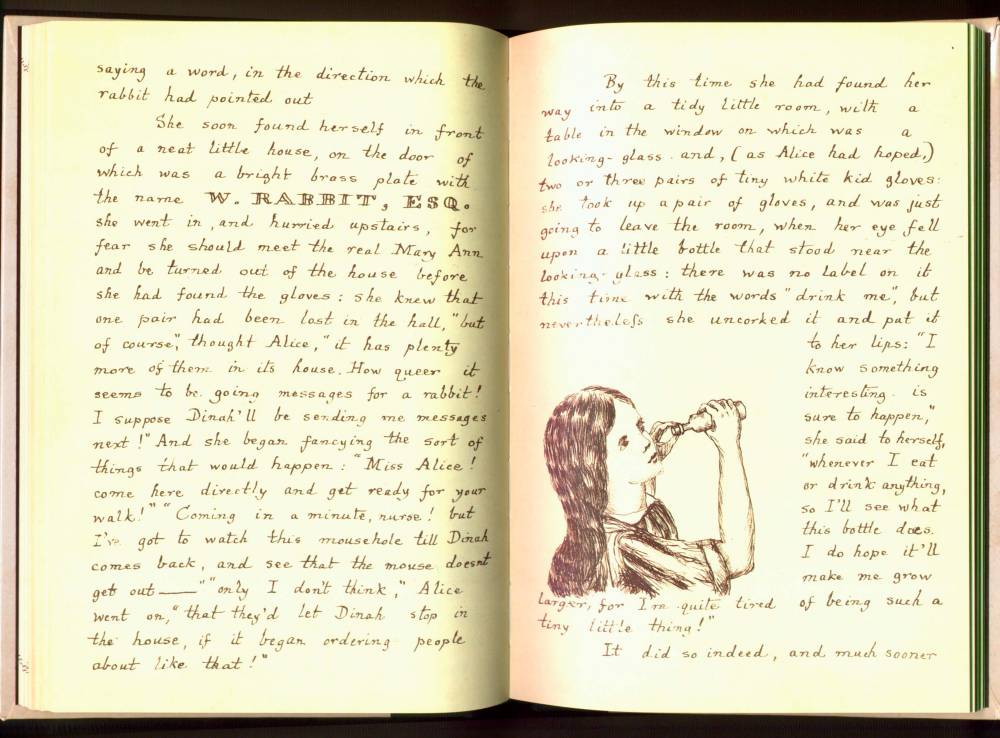 saying a word, in the direction which the
rabbit had pointed out
She soon found herself in front
of a neat little house, on the door of
which was a bright brass plate with
the name W. RABBIT, ESQ.
she went in, and hurried upstairs, for
fear she should meet the real Mary Ann
and be turned out of the house before
she had found the gloves: she knew that
one pair had been lost in the hall, "but
of course", thought Alice, "it has plenty
more of them in its house. How queer it
seems to be going messages for a rabbit!
I suppose Dinah'll be sending me messages
next!" And she began fancying the sort of
things that would happen: "Miss Alice!
come here directly and get ready for your
walk!" "Coming in a minute, nurse! but
I've got to watch this mousehole till Dinah
comes back, and see that the mouse doesnt
get out——" "only I don't think," Alice
went on, "that they'd let Dinah stop in
the house, if it began ordering people
about like that!"
By this time she had found her
way into a tidy little room, with a
table in the window on which was a
looking-glass and, (as Alice had hoped,)
two or three pairs of tiny white kid gloves:
she took up a pair of gloves, and was just
going to leave the room, when her eye fell
upon a little bottle that stood near the
looking-glass: there was no label on it
this time with the words "drink me", but
nevertheless she uncorked it and put it
to her lips: "I
know something
interesting is
sure to happen,"
she said to herself,
"whenever I eat
or drink anything,
so I'll see what
this bottle does.
I do hope it'll
make me grow
larger, for I'm quite tired of being such a
tiny little thing!"
It did so indeed, and much sooner